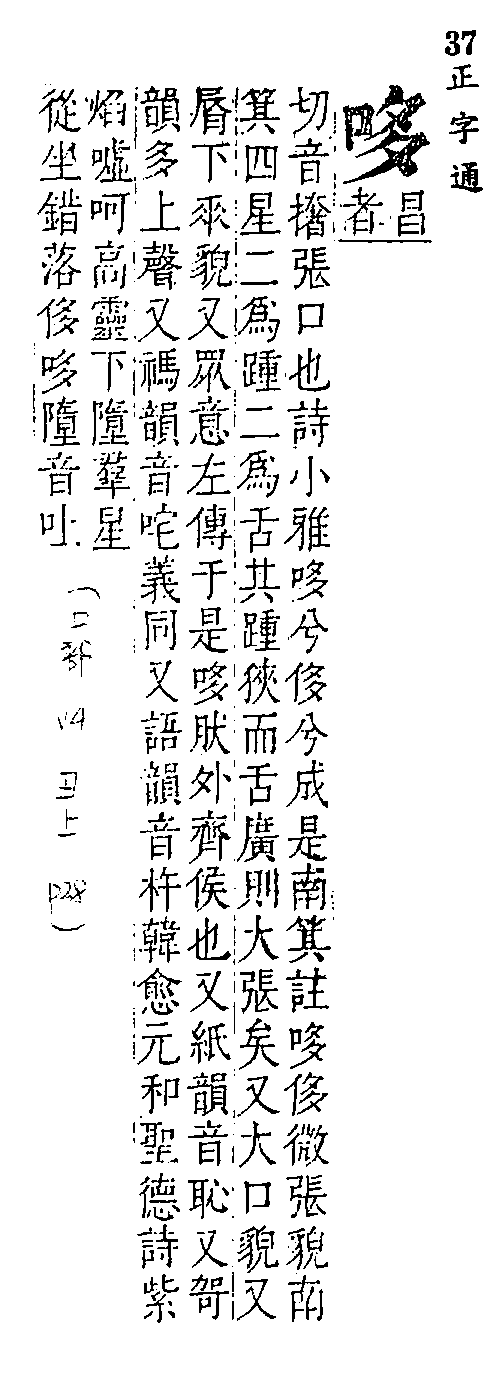 37
正字通
哆
昌者
切音撦張口也詩小雅哆兮侈兮成是南箕註哆侈微張貌南
箕四星二爲踵二爲舌其踵狹而舌廣則大張矣又大口貌又
脣下垂貌又眾意左傳于是哆肰外齊侯也又紙韻音恥又哿
韻多上聲又禡韻音咤義同又語韻音杵韓愈元和聖德詩紫
焰噓呵高靈下墮羣星
從坐錯落侈哆墮音吐
(口部 V4 丑上 P28)